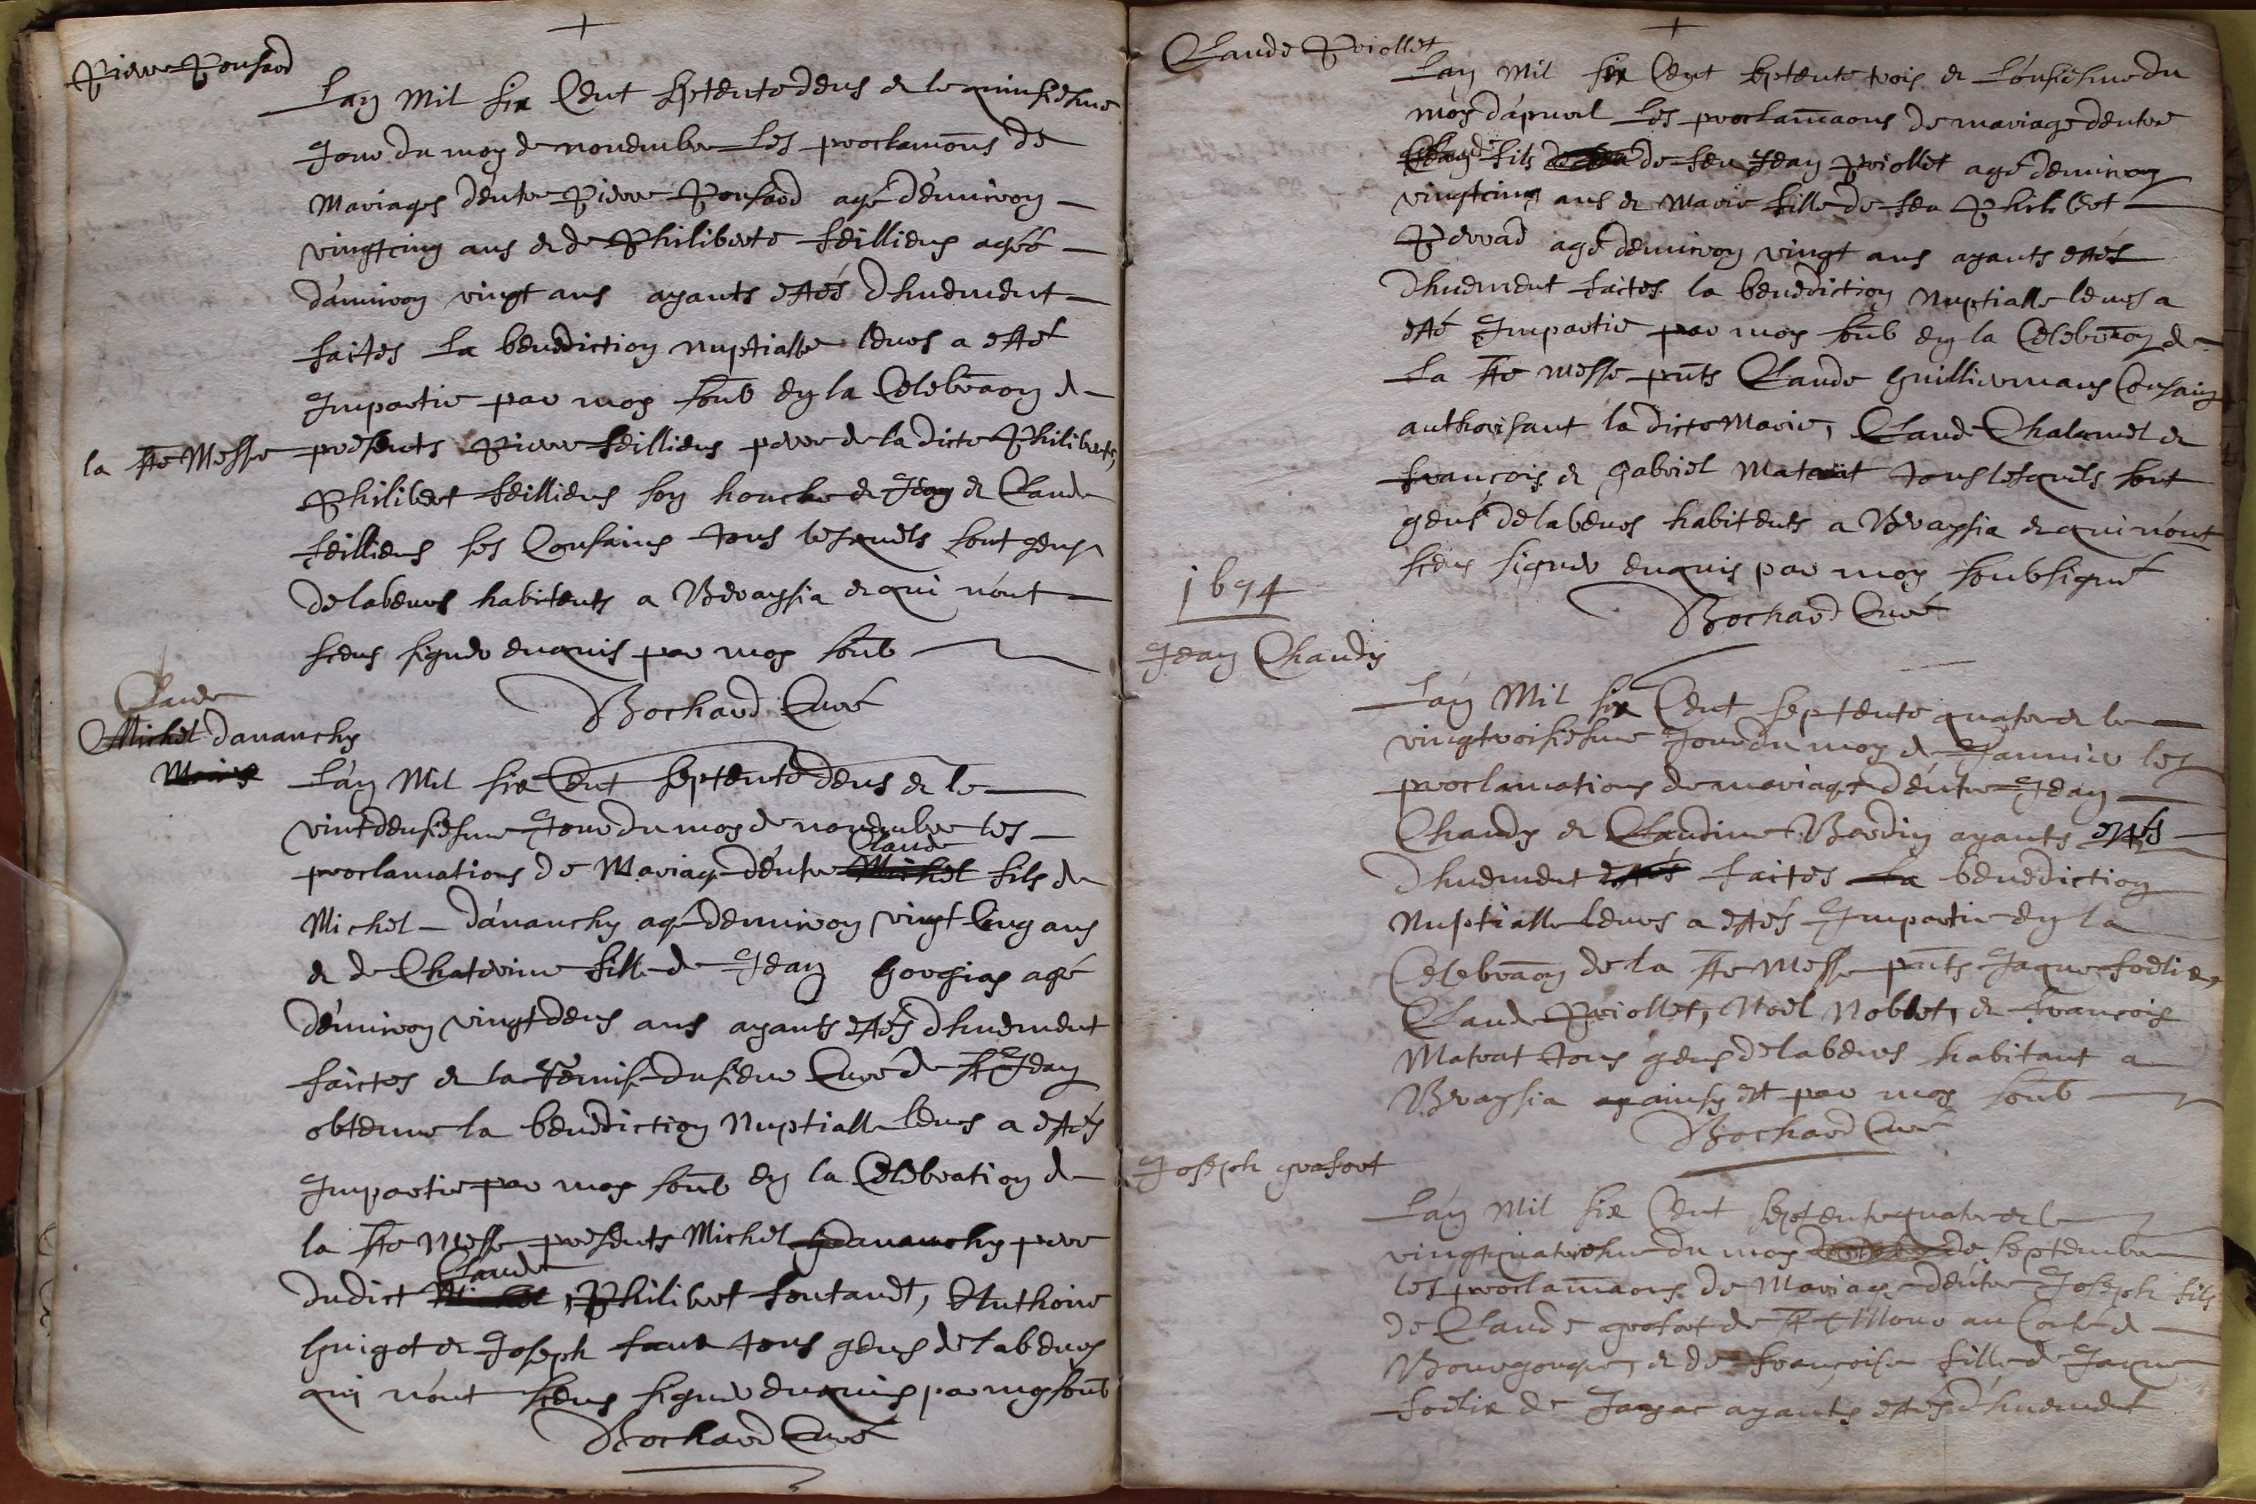 Pierre Ponsard
L'an Mil six Cent septente deus et le quinsiesme
Jour du moy de novembre les proclamons de
Mariages d'entre Pierre Ponsard agé d'environ
vingtcinq ans et de Philiberte feilliens agéé
d'anviron vingt ans ayants estés dhuement
faites la benediction nuptialle leurs a estét
Impartie par moy soub en la Celebraon de
la ste Messe presents Pierre feilliens pere de la dicte Philiberte,
Philibert feilliens son honcle et Jean et Claude
feilliens ses Cousains tous lesquels sont gens
de labeurs habitents a Breaysia et qui n'ont
sceus signer enquis par moy soub
Bochard Curé
Claude
Michel Dananchy
L'an Mil six Cent septente deus et le
vintdeusiesme Jour du moy de novembre les
proclamations de Mariage d'entre Michel Claude fils de
Michel d'ananchy agé d'environ vingt Cinq ans
et de Chaterine fille de Jean Gorgias agé
d'environ vingtdeus ans ayants estés dhuement
faictes et la Remise du sieur Curé de St Jean
obtenue la benediction Nuptialle leurs a estés
Impartie par moy soub en la Celebration de
la ste Messe presents Michel Dananchy pere
dudict Michel Claude, Philibert fontanet, Anthoine
Guigot et Joseph faur tous gens de labeurs
qui n'ont sceus signer enquis par moy soub
Bochard Curé
Claude Priollet
L'an Mil six Cent septente trois et l'onsiesme du
moy d'apvril les proclamaons de mariage d'entre
Claude fils de feu Jean Priollet agé d'environ
vingtcinq ans et Marie fille de feu Philibert
Perrad agé d'environ vingt ans ayants estés
Dhuement faites la benediction Nuptialle leurs a
esté Impartie par moy soub en la Celebraon de
la ste messe pnts Claude Guilliermans Cousain
authorisant la dicte Marie, Claude Chalumel et
françois et Gabriel Matrat tous lesquels sont
gens de labeurs habitents a Breaysia et qui n'ont
sceus signer enquis par moy soubsigné
Bochard Curé
1674
Jean Chandy
L'an Mil six Cent septente quatre et le
vingtroisiesme Jour du moy de Janvier les
proclamations de mariage d'entre Jean
Chandy et Claudine Bardin ayants estés
Dhuement estés faites la benediction
Nuptialle leurs a estés Impartie en la
Celebraon de la ste Messe pnts Jaque fodlie,
Claude Priollet, Noel Noblet, et francois
Matrat tous gens de labeurs habitant a
Breaysia ainsy est par moy soub
Bochard Curé
Joseph grafort
L'an Mil six Cent septente quatre et le
vingtquatresme du moy de septembre
les proclamaons de Mariage d'entre Joseph fils
de Claude grosfort de St Amour au Conte de
Bourgongne, et de françoise fille de Jaque
fodlie de Jayac ayants estés d'huement